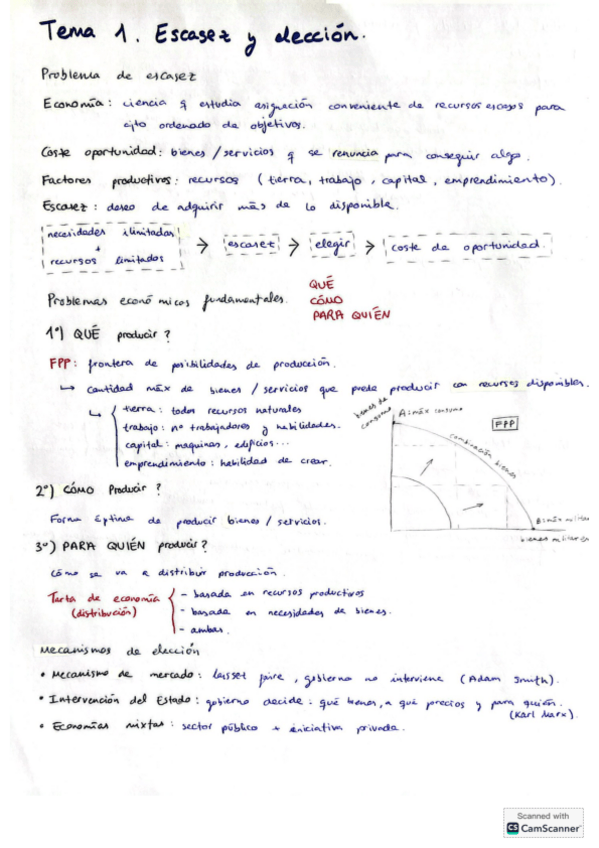 Tema 1. Escasez y elección.
Problema de escasez
Economía: ciencia q estudia asignación conveniente de recursos escasos para
éjto ordenado de objetivos.
Coste oportunidad: bienes / servicios q se renuncia para conseguir algo.
Factores productivos: recursos (tierra, trabajo, capital, emprendimiento).
Escasez: deseo de adquirir más de lo disponible.
necesidades ilimitadas
+
recursos limitados
→ escasez → elegir → coste de oportunidad.
Problemas económicos fundamentales.
QUÉ
CÓMO
PARA QUIÉN
1º) QUÉ producir?
FPP: frontera de posibilidades de producción.
↳ cantidad máx de bienes / servicios que puede producir con recursos disponibles.
↳ tierra: todos recursos naturales
trabajo: nº trabajadores y habilidades.
capital: maquinas, edificios...
emprendimiento: habilidad de crear.
bienes de consumo
A: máx consumo
FPP
combinación bienes
B: máx militar
bienes militares
2º) CÓMO Producir?
Forma óptima de producir bienes / servicios.
3º) PARA QUIÉN producir?
Cómo se va a distribuir producción.
Tarta de economía
(distribución)
- basada en recursos productivos
- basada en necesidades de bienes.
- ambas.
Mecanismos de elección
• Mecanismo de mercado: laisset faire, gobierno no interviene (Adam Smith).
• Intervención del Estado: gobierno decide: qué bienes, a qué precios y para quién.
(Karl Marx).
• Economías mixtas: sector público + iniciativa privada.
Scanned with
CS CamScanner